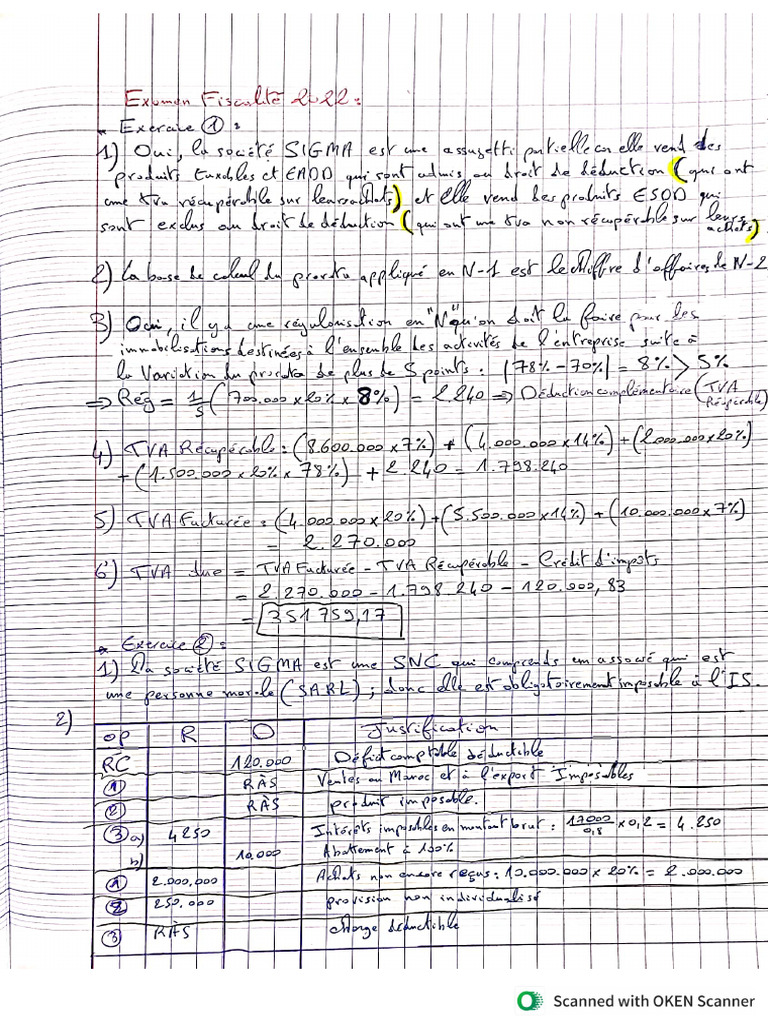 Examen Fiscalité 2022 :
* Exercice ① :
1) Oui, la société SIGMA est une assujetti partielle car elle vend des
produits taxables et EADD qui sont admis au droit de déduction (qui ont
une tva récupérable sur leurs achats) et elle vend des produits ESDD qui
sont exclus au droit de déduction (qui ont une tva non récupérable sur leurs
achats).
2) La base de calcul du prorata appliqué en N-1 est le chiffre d'affaires de N-2
3) Oui, il y a une régularisation en "N" qu'on doit la faire pour les
immobilisations destinées à l'ensemble des activités de l'entreprise suite à
la variation du prorata de plus de 5 points : |78% - 70%| = 8% > 5%
⇒ Rég = 1/5 (700.000 x 20% x 8%) = 2.240 ⇒ Déduction complémentaire (TVA
Récupérable)
4) TVA Récupérable : (8.600.000 x 7%) + (4.000.000 x 14%) + (2.000.000 x 20%)
+ (1.500.000 x 20% x 78%) + 2.240 = 1.798.240
5) TVA Facturée : (4.000.000 x 20%) + (5.500.000 x 14%) + (10.000.000 x 7%)
= 2.270.000
6) TVA due = TVA Facturée - TVA Récupérable - Crédit d'impôts
= 2.270.000 - 1.798.240 - 120.000,83
= 351 759,17
* Exercice ② :
1) La société SIGMA est une SNC qui comprends un associé qui est
une personne morale (SARL) ; donc elle est obligatoirement imposable à l'IS.
2)
op R D Justification
RC 120.000 Déficit comptable déductible
① RÀS Ventes au Maroc et à l'export Imposables
② RÀS produit imposable.
③ a) 4250 Intérêts imposables en montant brut : 17000/0,8 x 0,2 = 4.250
b) 10.000 Abattement à 100%
① 2.000.000 Achats non encore reçus : 10.000.000 x 20% = 2.000.000
② 250.000 provision non individualisé
③ RÀS charge déductible
Scanned with OKEN Scanner